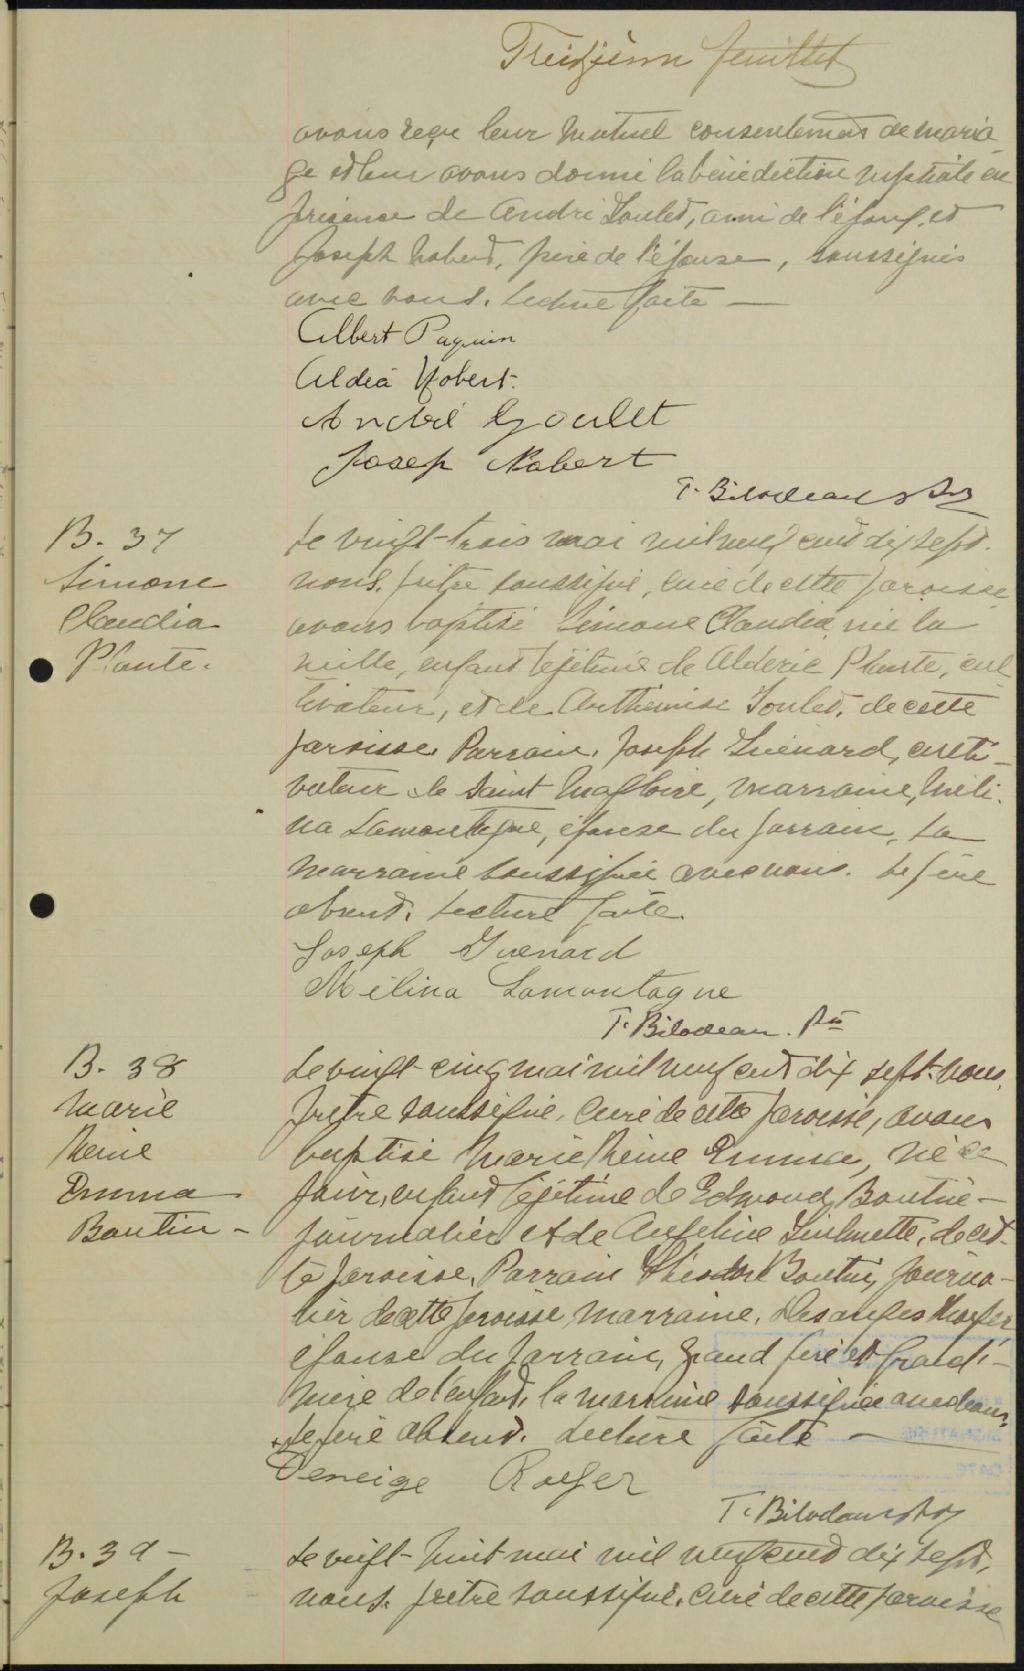 Treizième feuillet
avons reçu leur mutuel consentement de maria-
ge et leur avons donné la bénédiction nuptiale en
présence de André Goulet, ami de l'époux, et
Joseph Nobert, père de l'épouse, soussignés
avec nous. Lecture faite —
Albert Paquin
Aldéa Nobert.
André Goulet
Josep Nobert
T. Bilodeau ptre
B. 37
Simone
Claudia
Plante.
Le vingt-trois mai mil neuf cent dix sept.
nous, prêtre soussigné, curé de cette paroisse,
avons baptisé Simone Claudia, née la
veille, enfant légitime de Aldéric Plante, cul-
tivateur, et de Arthémise Goulet, de cette
paroisse. Parrain, Joseph Guénard, culti-
vateur de Saint Magloire, marraine, Méli-
na Lamontagne, épouse du parrain, la
marraine soussignée avec nous. Le père
absent. Lecture faite.
Joseph Guenard
Mélina Lamontagne
T. Bilodeau. Ptre
B. 38
Marie
Reine
Emma
Boutin -
Le vingt-cinq mai mil neuf cent dix sept. nous,
prêtre soussigné, curé de cette paroisse, avons
baptisé Marie Reine Emma, née ce
jour, enfant légitime de Edmond Boutin -
journalier et de Angéline Guilmette, de cet-
te paroisse. Parrain Théodore Boutin, journa-
lier de cette paroisse marraine, Desanges
épouse du parrain, grand père et grand'-
mère de l'enfant, la marraine soussignée avec nous,
Le père absent. Lecture faite —
Deneige
T. Bilodeau ptre
B. 39 -
Joseph
Le vingt-huit mai mil neuf cent dix sept,
nous, prêtre soussigné, curé de cette paroisse